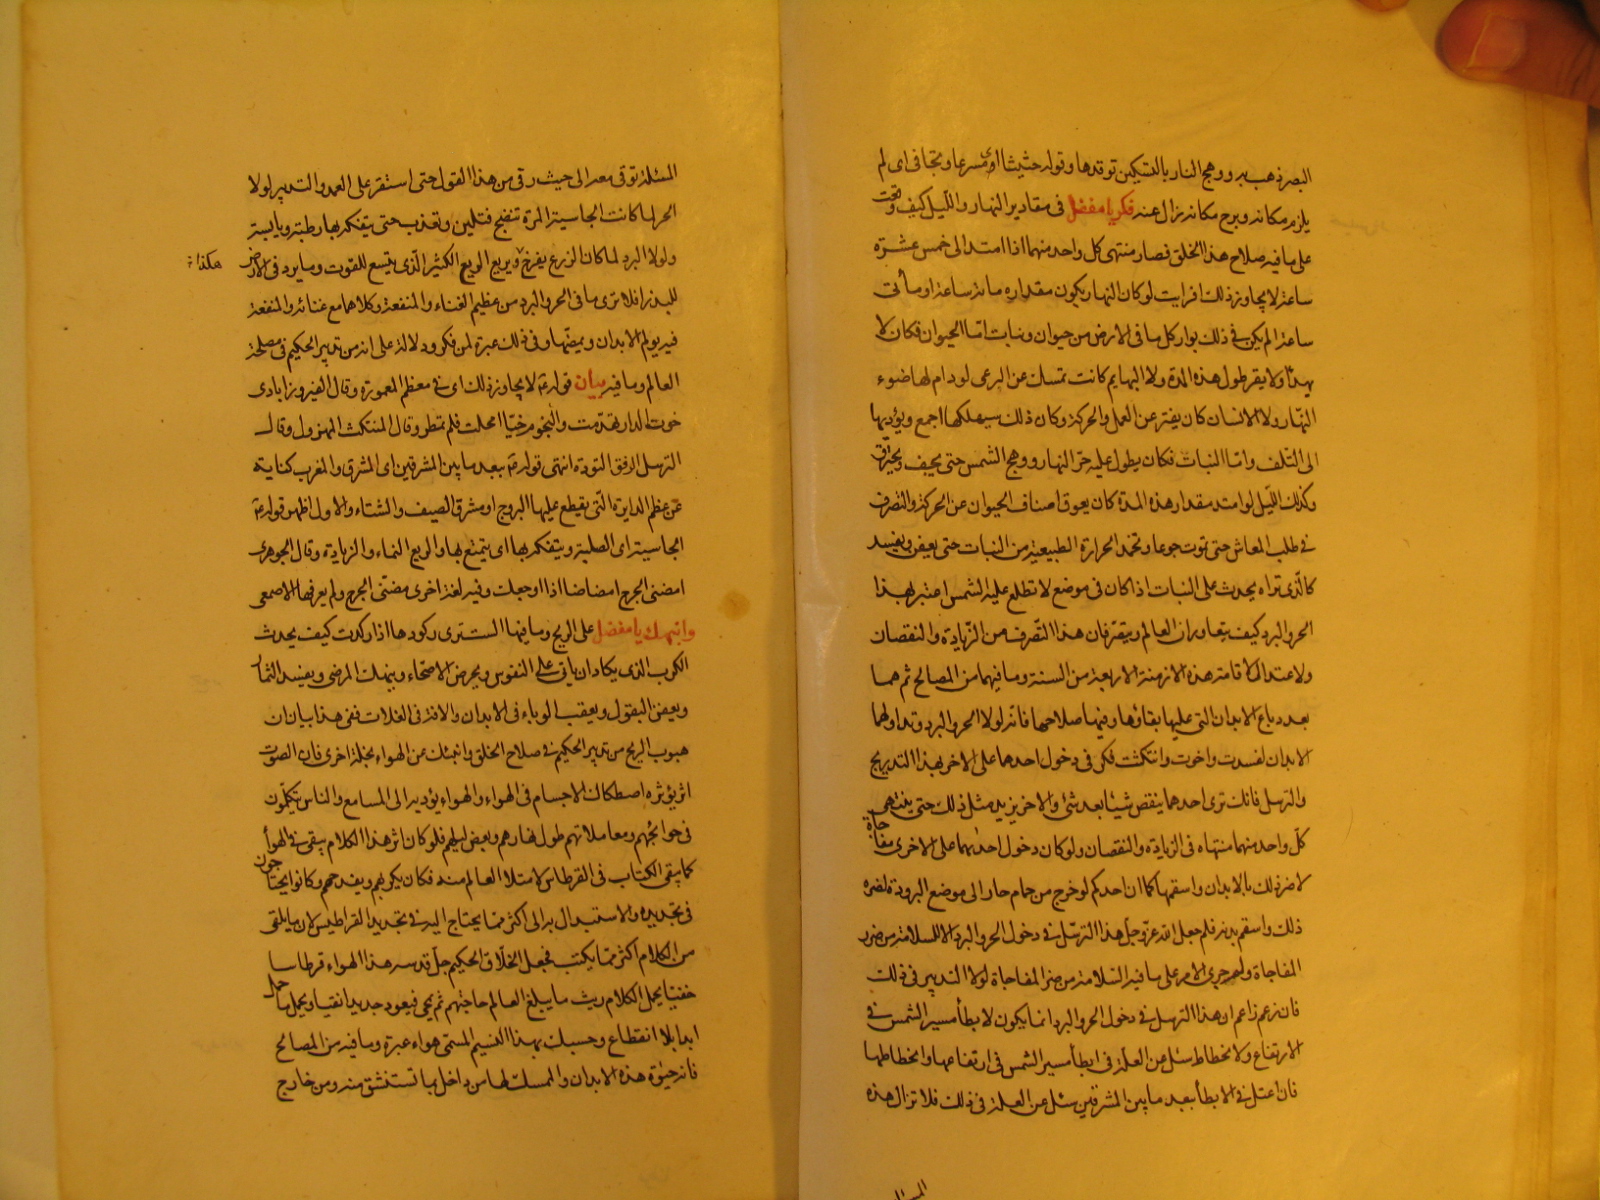 البصر ذهب به ووهج النار بالتسكين توقدها وقوله حثيثا اى مسرعا وتجافى اى لم
يلزم مكانه وبرح مكانه زال عنه فكر يا مفضل فى مقادير النهار والليل كيف وقعت
على ما فيه صلاح هذا الخلق فصار منتهى كل واحد منهما اذا امتد الى خمس عشرة
ساعة لا يجاوز ذلك افرايت لو كان النهار يكون مقداره مائة ساعة او مأتى
ساعة الم يكن فى ذلك بوار كل ما فى الارض من حيوان ونبات اما الحيوان فكان لا
يهدأ ولا يقر طول هذه المدة ولا البهايم كانت تمسك عن الرعى لو دام لها ضوء
النهار ولا الانسان كان يفتر عن العمل والحركة وكان ذلك سيهلكها اجمع ويؤديها
الى التلف واما النبات فكان يطول عليه حر النهار ووهج الشمس حتى يجف ويحترق
وكذلك الليل لو امتد مقدار هذه المدة كان يعوق اصناف الحيوان عن الحركة والتصرف
فى طلب المعاش حتى تموت جوعا وتخمد الحرارة الطبيعية من النبات حتى يعفن ويفسد
كالذى تراه يحدث على النبات اذا كان فى موضع لا تطلع عليه الشمس اعتبر بهذا
الحر والبرد كيف يتعاوران العالم ويتصرفان هذا التصرف من الزيادة والنقصان
والاعتدال لاقامة هذه الازمنة الاربعة من السنة وما فيهما من المصالح ثم هما
بعد دباغ الابدان التى عليها بقاؤها وفيها صلاحها فانه لولا الحر والبرد وتداولهما
الابدان لفسدت واخوت وانتكثت فكر فى دخول احدهما على الاخر بهذا التدريج
والترسل فانك ترى احدهما ينقص شيئا بعد شئ والاخر يزيد مثل ذلك حتى ينتهى
كل واحد منهما منتهاه فى الزيادة والنقصان ولو كان دخول احدهما على الاخرى مفاجاة
لاضر ذلك بالابدان واسقمها كما ان احدكم لو خرج من حمام حار الى موضع البرودة لضره
ذلك واسقم بدنه فلم جعل الله عز وجل هذا الترسل فى دخول الحر والبرد الا للسلامة من ضرر
المفاجاة ولم جرى الامر على ما فيه السلامة من ضر المفاجاة لولا التدبير فى ذلك
فان زعم زاعم ان هذا الترسل فى دخول الحر والبرد انما يكون لابطأ مسير الشمس فى
الارتفاع والانحطاط سئل عن العلة فى ابطأ مسير الشمس فى ارتفاعها وانحطاطها
فان اعتل فى الابطأ ببعد ما بين المشرقين سئل عن العلة فى ذلك فلا تزال هذه
المسئلة
المسئلة توقى معه الى حيث رقى من هذا القول حتى استقر على العمد والتدبير لولا
الحر لما كانت الجاسية المرة تنضج فتلين وتعذب حتى يتفكه بها رطبة ويابسة
ولولا البرد لما كان الزرع يفرخ ويريع الريع الكثير الذى يتسع للقوت وما يرد فى الارض
هكذا
للبذر افلا ترى ما فى الحر والبرد من عظيم الغناء والمنفعة وكلاهما مع غنائه والمنفعة
فيه يولم الابدان ويمضها وفى ذلك عبرة لمن فكر ودلالة على انه من تدبير الحكيم فى مصلحة
العالم وما فيه بيان قوله ع لا يجاوز ذلك اى فى معظم المعمورة وقال الفيروزابادى
خوت الدار تهدمت والنجوم خيا امحلت فلم تمطر وقال المنتكث المهزول وقال
الترسل الرفق التودة انتهى قوله ع ببعد ما بين المشرقين اى المشرق والمغرب كناية
عن عظم الدايرة التى يقطع عليها البروج او مشرق الصيف والشتاء والاول اظهر قوله ع
الجاسية اى الصلبة ويتفكه بها اى يتمتع بها والريع النماء والزيادة وقال الجوهرى
امضنى الجرح امضاضا اذا اوجعك وفيه لغة اخرى مضنى الجرح ولم يعرفها الاصمعى
وانبهك يا مفضل على الريح وما فيها الست ترى ركودها اذا ركدت كيف يحدث
الكرب الذى يكاد ان ياتى على النفوس ويحرض الاصحاء وينهك المرضى ويفسد الثمار
ويعفن البقول ويعقب الوباء فى الابدان والافة فى الغلات ففى هذا بيان ان
هبوب الريح من تدبير الحكيم فى صلاح الخلق وانبئك عن الهواء بخلة اخرى فان الصوت
اثر يؤثره اصطكاك الاجسام فى الهواء والهواء يؤديه الى المسامع والناس يتكلمون
فى حوائجهم ومعاملاتهم طول نهارهم وبعض ليلهم فلو كان اثر هذا الكلام يبقى فى الهوأ
كما يبقى الكتاب فى القرطاس لامتلا العالم منه فكان يكربهم ويفدحهم وكانوا يحتاجون
فى تجديده والاستبدال به الى اكثر مما يحتاج اليه فى تجديد القراطيس لان ما يلقى
من الكلام اكثر مما يكتب فجعل الخلاق الحكيم جل قدسه هذا الهواء قرطاسا
خفيا يحمل الكلام ريث ما يبلغ العالم حاجتهم ثم يمحى فيعود جديدا نقيا ويحمل ما حمل
ابدا بلا انقطاع وحسبك بهذا النسيم المسمى هواء عبرة وما فيه من المصالح
فانه حيوة هذه الابدان والممسك لها من داخل بما تستنشق منه ومن خارج